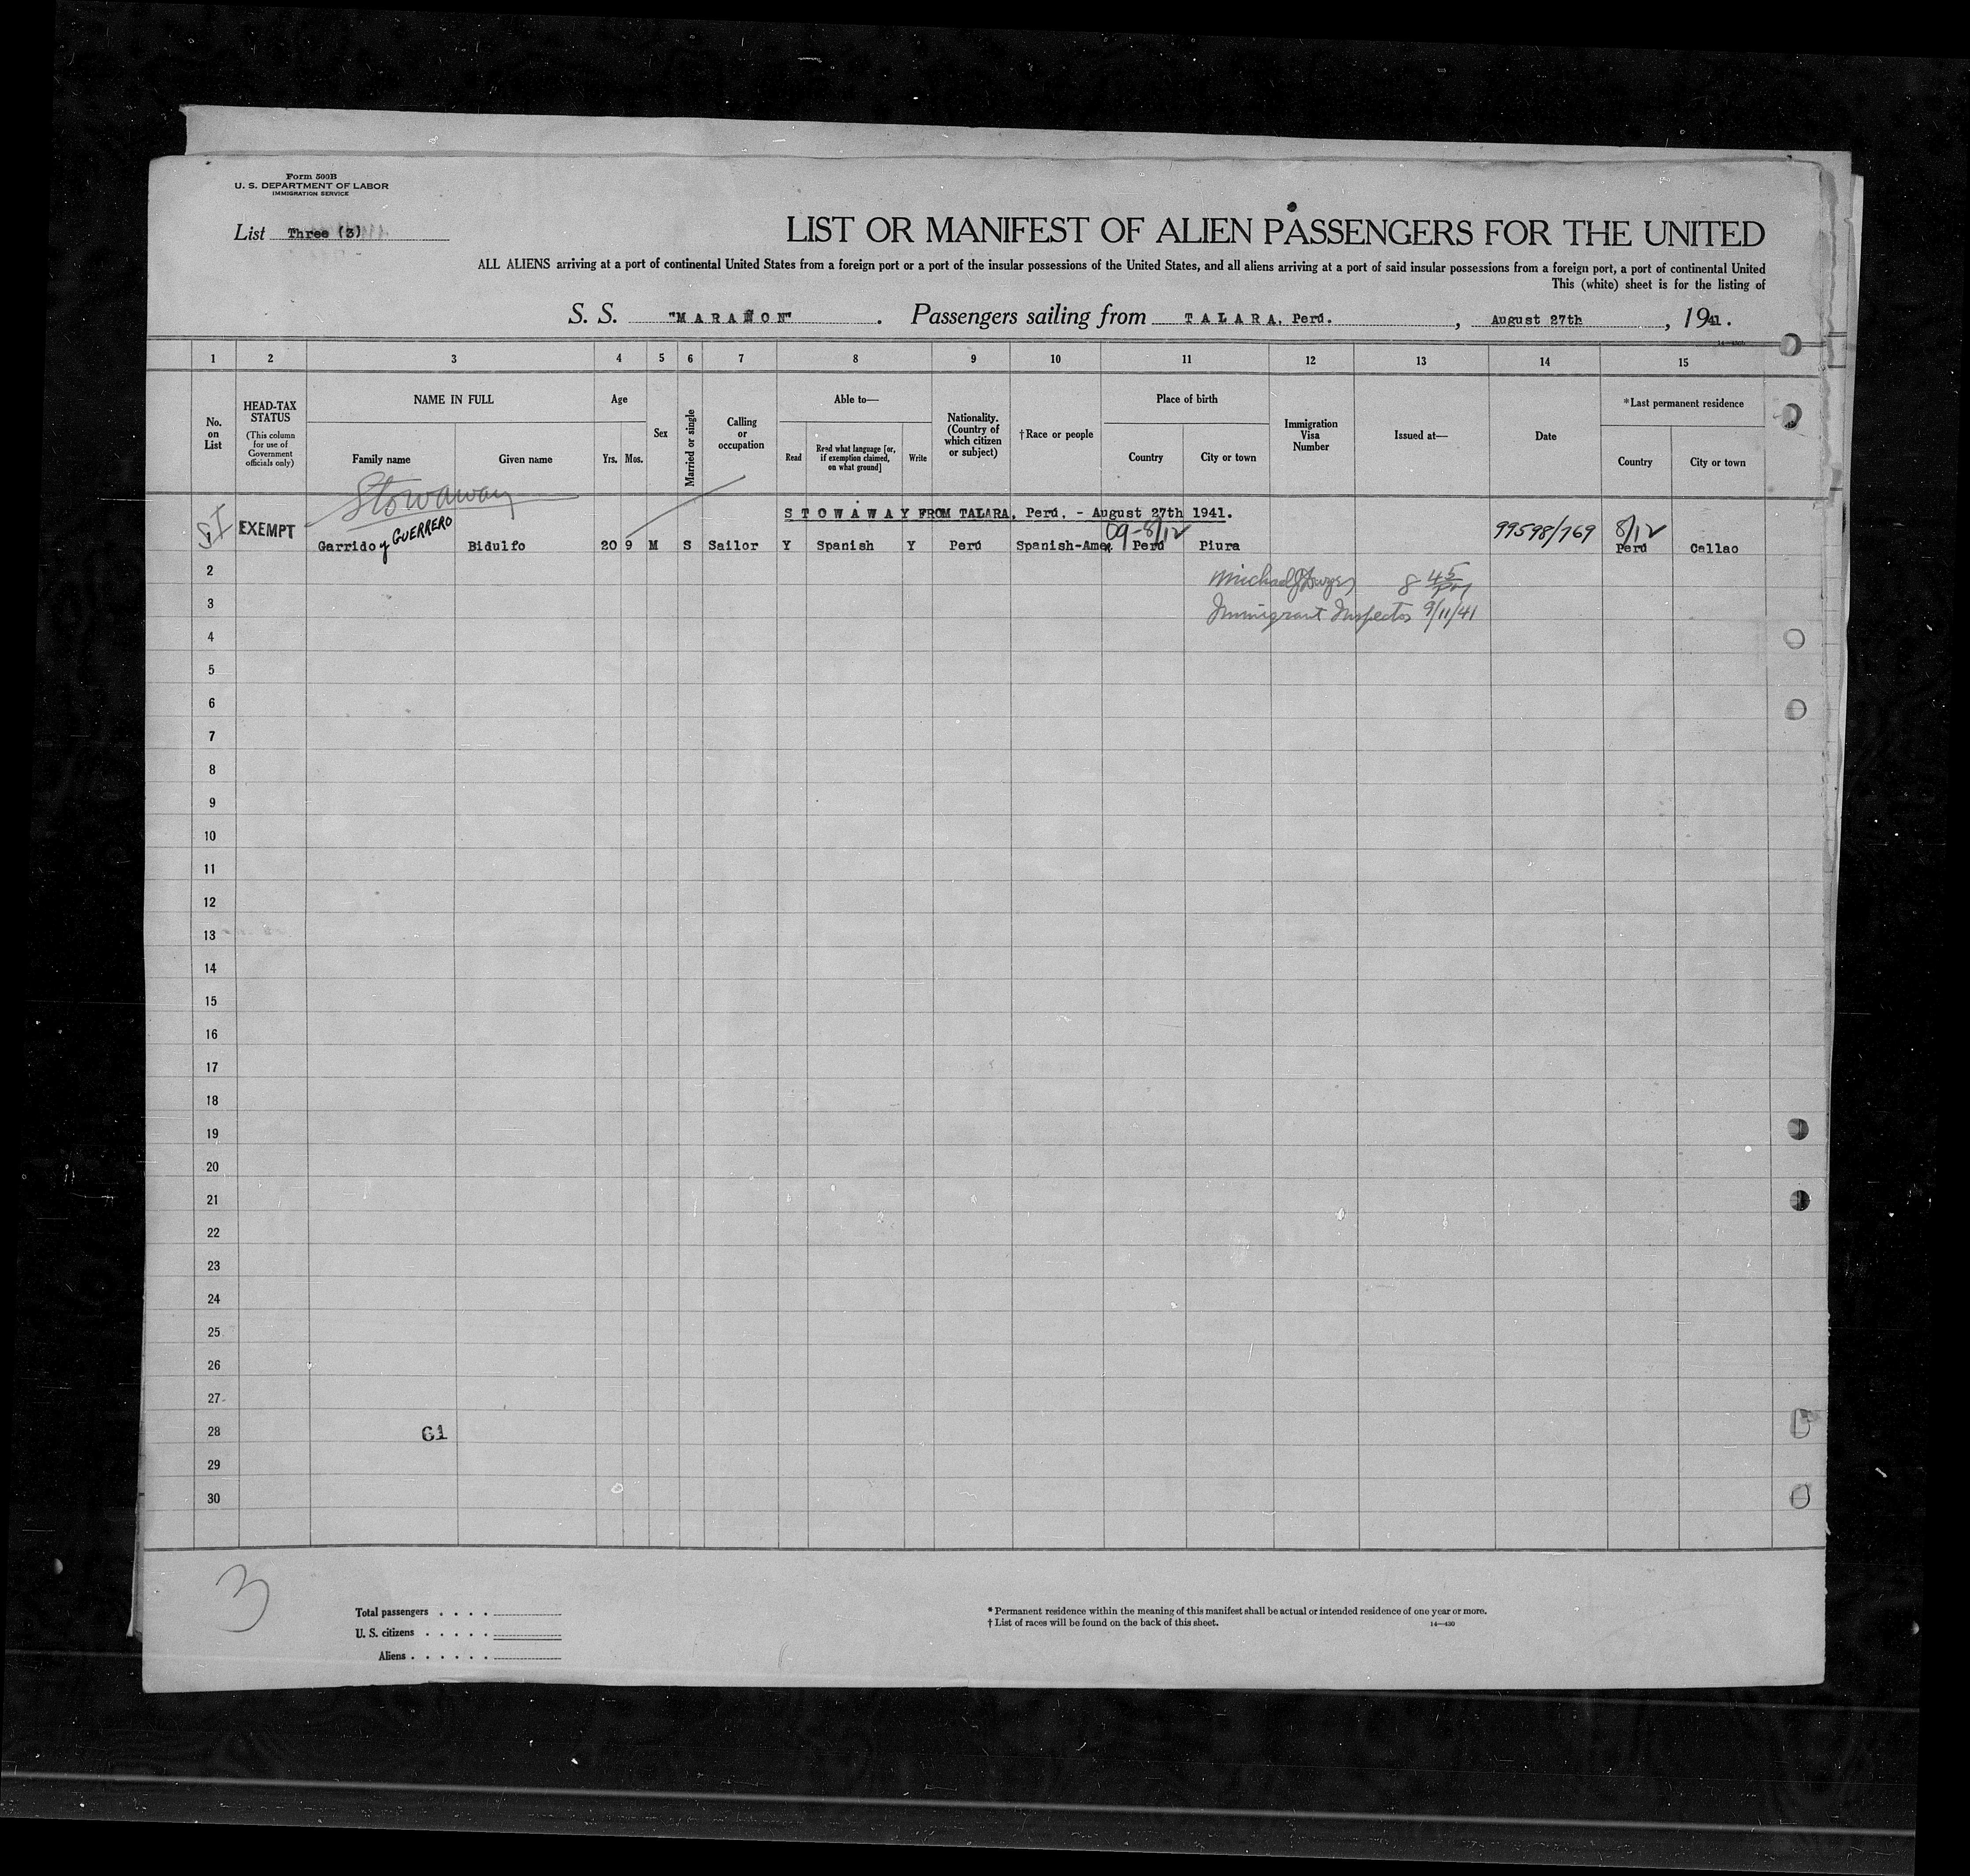 Form 500B
U. S. DEPARTMENT OF LABOR
IMMIGRATION SERVICE
List Three (3)
LIST OR MANIFEST OF ALIEN PASSENGERS FOR THE UNITED
ALL ALIENS arriving at a port of continental United States from a foreign port or a port of the insular possessions of the United States, and all aliens arriving at a port of said insular possessions from a foreign port, a port of continental United
This (white) sheet is for the listing of
S. S. "MARAÑON". Passengers sailing from TALARA, Perú., August 27th, 1941.
1 2 3 4 5 6 7 8 9 10 11 12 13 14 15
No. on List
HEAD-TAX STATUS
(This column for use of Government officials only)
NAME IN FULL
Family name Given name
Age
Yrs. Mos.
Sex
Married or single
Calling or occupation
Able to—
Read
Read what language [or, if exemption claimed, on what ground]
Write
Nationality. (Country of which citizen or subject)
†Race or people
Place of birth
Country City or town
Immigration Visa Number
Issued at—
Date
*Last permanent residence
Country City or town
Stowaway
STOWAWAY FROM TALARA, Perú, - August 27th 1941.
SI EXEMPT GUERRERO 09-8/12 99598/769 8/12
Garrido y Bidulfo 20 9 M S Sailor Y Spanish Y Perú Spanish-Amer Perú Piura Perú Callao
2 Michael 8 45 PM
3 Immigrant Inspector 9/11/41
4
5
6
7
8
9
10
11
12
13
14
15
16
17
18
19
20
21
22
23
24
25
26
27
28 61
29
30
3
Total passengers . . . .
U. S. citizens . . . . .
Aliens . . . . . .
* Permanent residence within the meaning of this manifest shall be actual or intended residence of one year or more.
† List of races will be found on the back of this sheet.
14—430